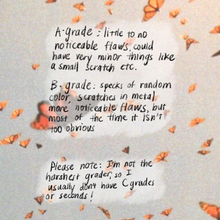 A-grade : little to no
noticeable flaws, could
have very minor things like
a small scratch etc.
B-grade: specks of random
color, scratches in metal,
more noticeable flaws, but
most of the time it isn't
too obvious
Please note: I'm not the
harshest grader, so I
usually don't have C grades
or seconds!